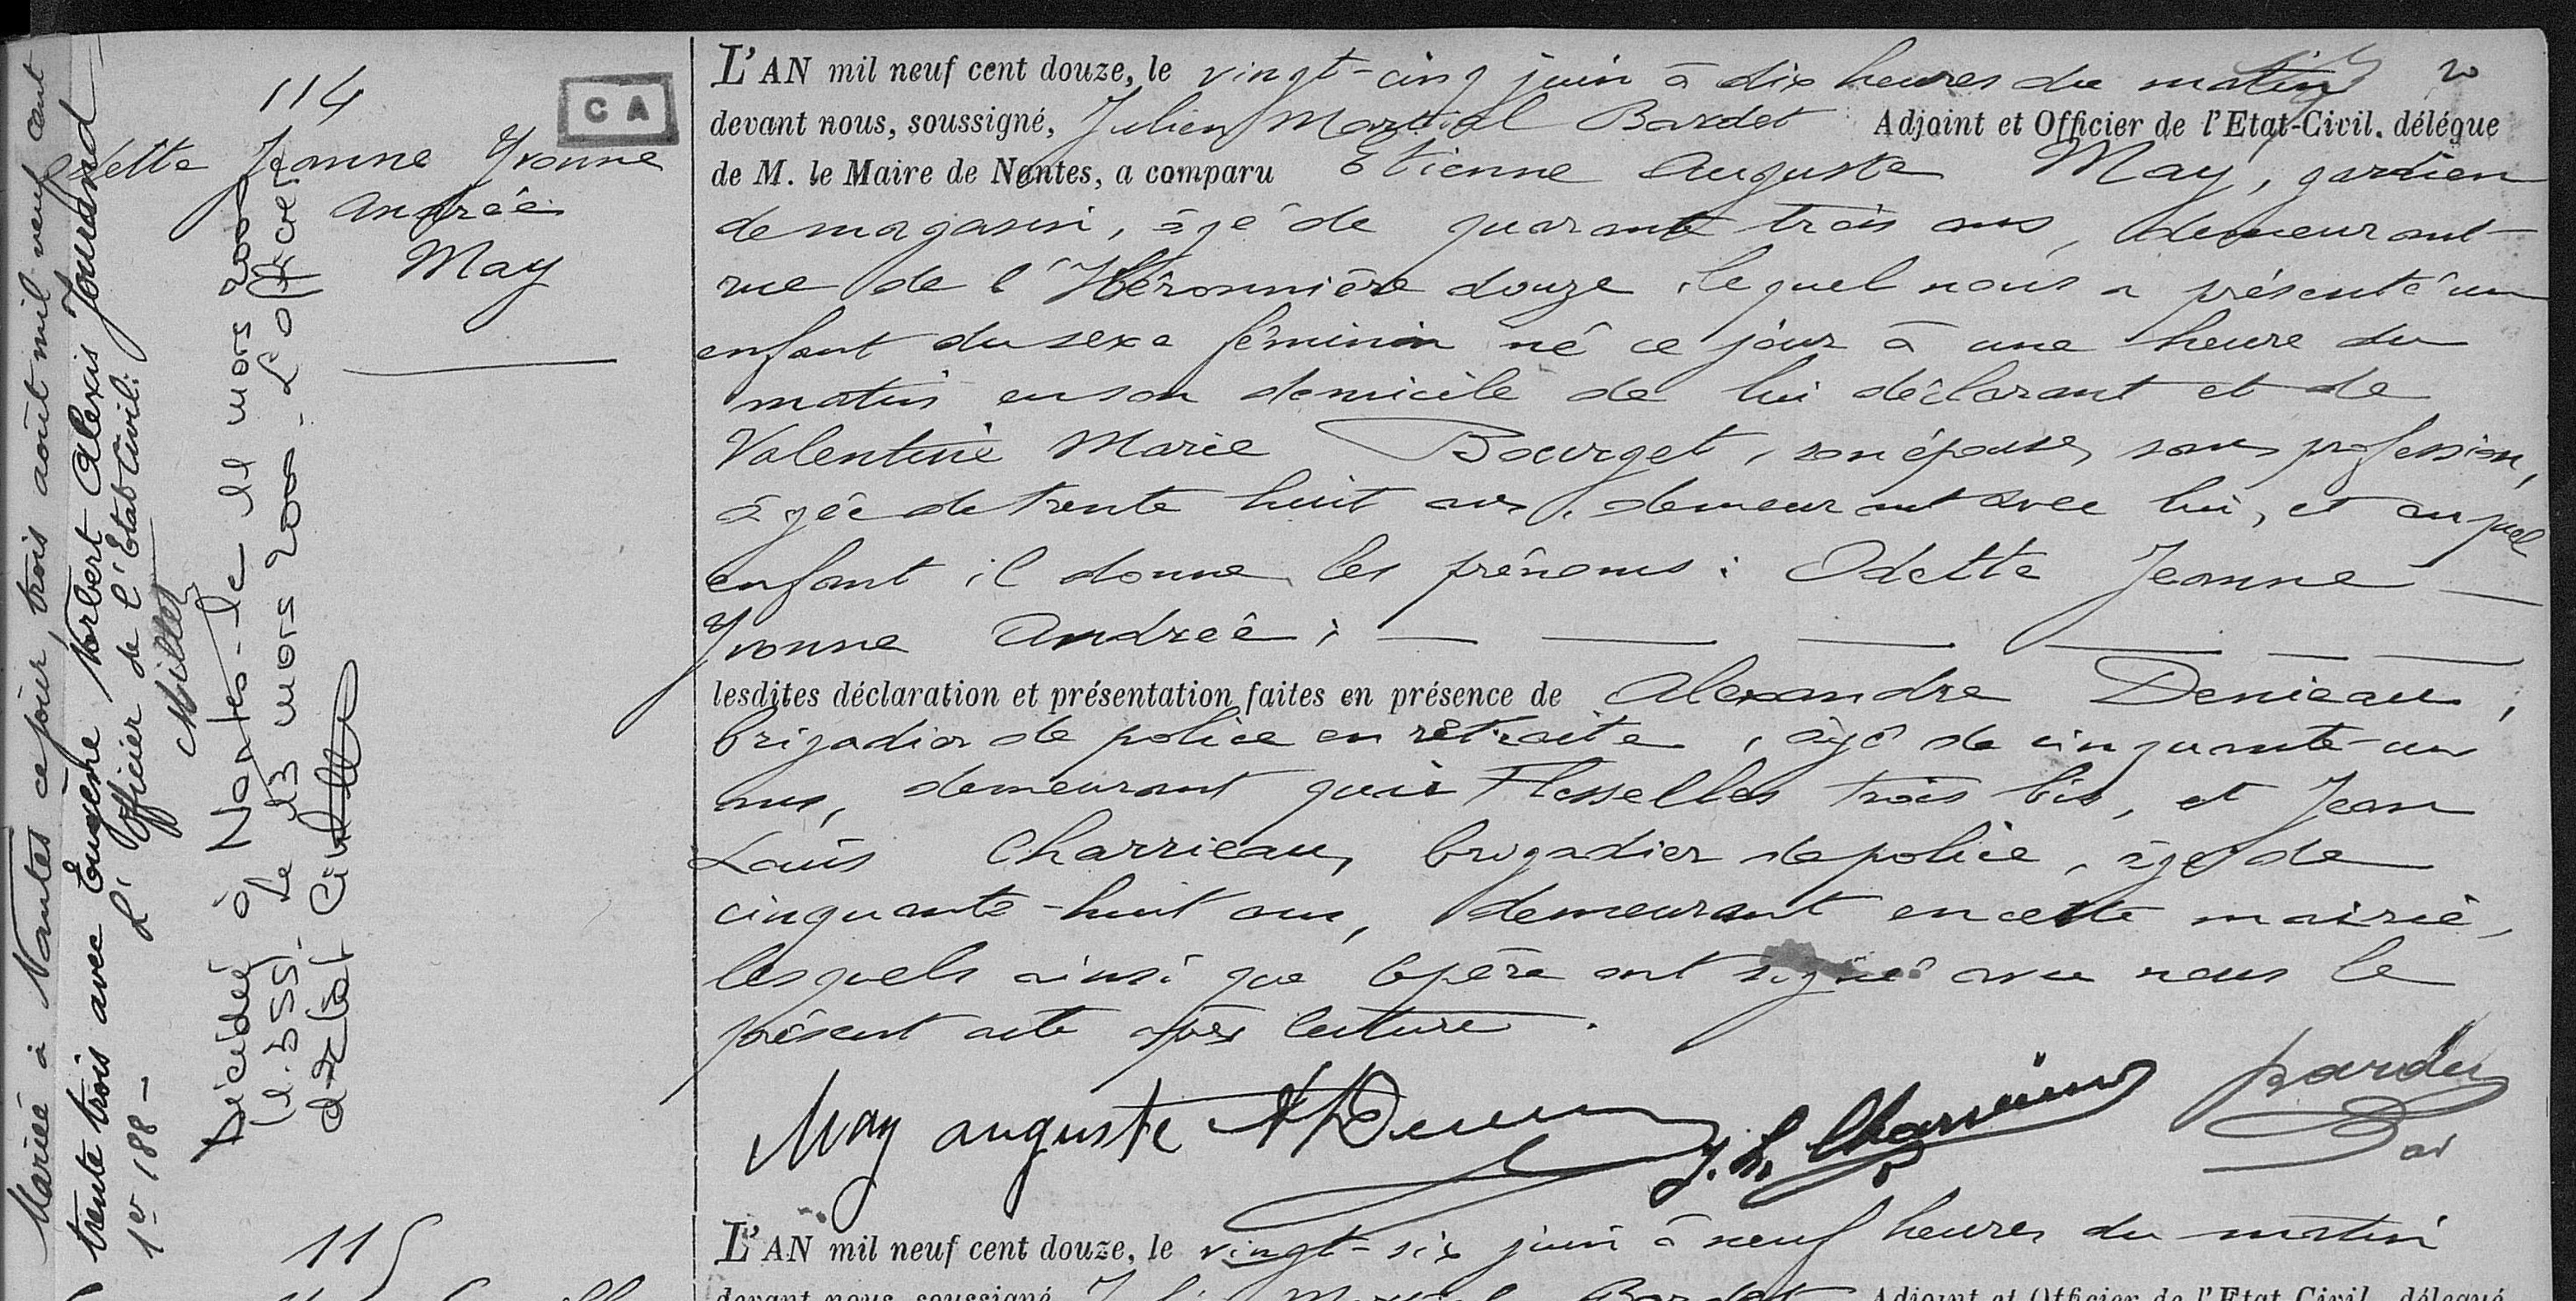 Mariée à Nantes ce jour, trois août mil neuf cent
trente trois avec Eugène Norbert Alexis Jourand
1er 188 - L'officier de l'Etat Civil:
Millet
Décédée à Nantes - le 11 mars 2000
Le 13 mars 2000 - L'officier
d'Etat Civil
114
C A
Odette Jeanne Yvonne
Andrée
May
20
L'AN mil neuf cent douze, le vingt-cinq juin à dix heures du matin
devant nous, soussigné, Julien Martial Bardet Adjoint et Officier de l'Etat-Civil, délégué
de M. le Maire de Nantes, a comparu Etienne Auguste May, gardien
de magasin, âgé de quarante trois ans, demeurant
rue de l'Héronnière douze, lequel nous a présenté un
enfant du sexe féminin né ce jour à une heure du
matin en son domicile de lui déclarant et de
Valentine Marie Bourget, son épouse, sans profession,
âgée de trente huit ans, demeurant avec lui, et auquel
enfant il donne les prénoms : Odette Jeanne
Yvonne Andrée ;
lesdites déclaration et présentation faites en présence de Alexandre Denieau,
brigadier de police en retraite, âgé de cinquante-un
ans, demeurant quai Flesselles trois bis, et Jean
Louis Charrieau, brigadier de police, âgé de
cinquante-huit ans, demeurant en cette mairie,
lesquels ainsi que le père ont signé avec nous le
présent acte après lecture.
May auguste J. L. Charrieau
115
L'AN mil neuf cent douze, le vingt-six juin à neuf heures du matin
devant nous, soussigné, Julien Martial Bardet Adjoint et Officier de l'Etat-Civil, délégué